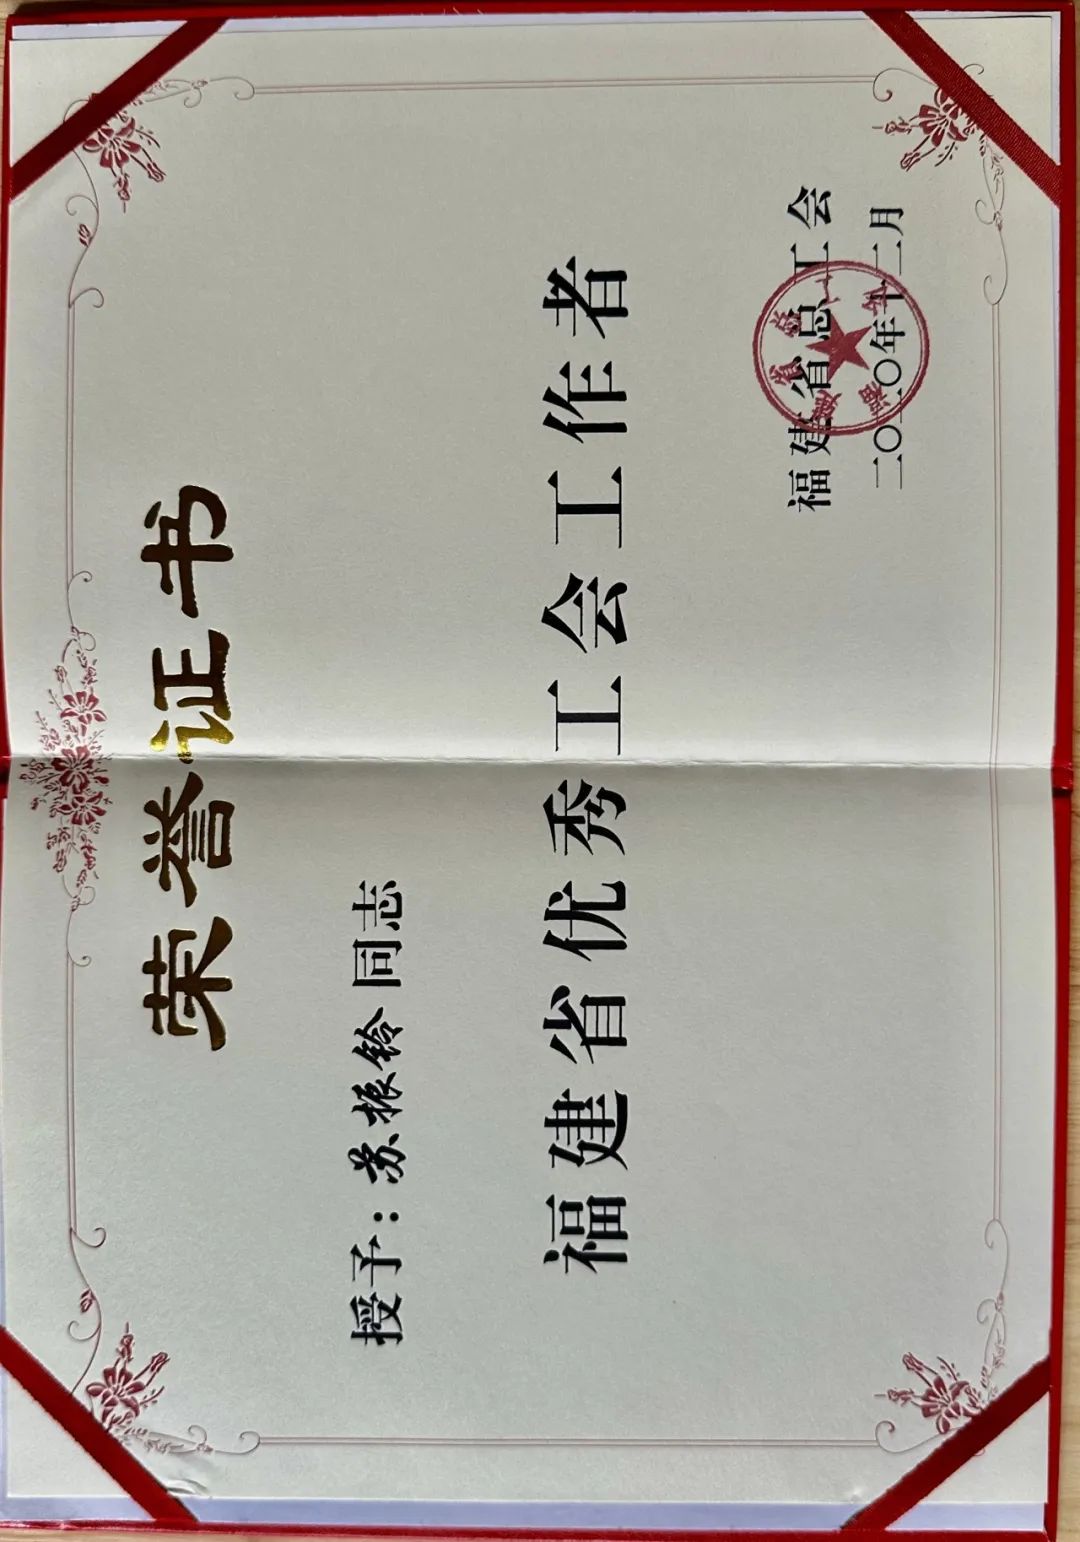 荣誉证书
授予：苏振铃同志
福建省优秀工会工作者
福建省总工会
二〇二〇年十二月